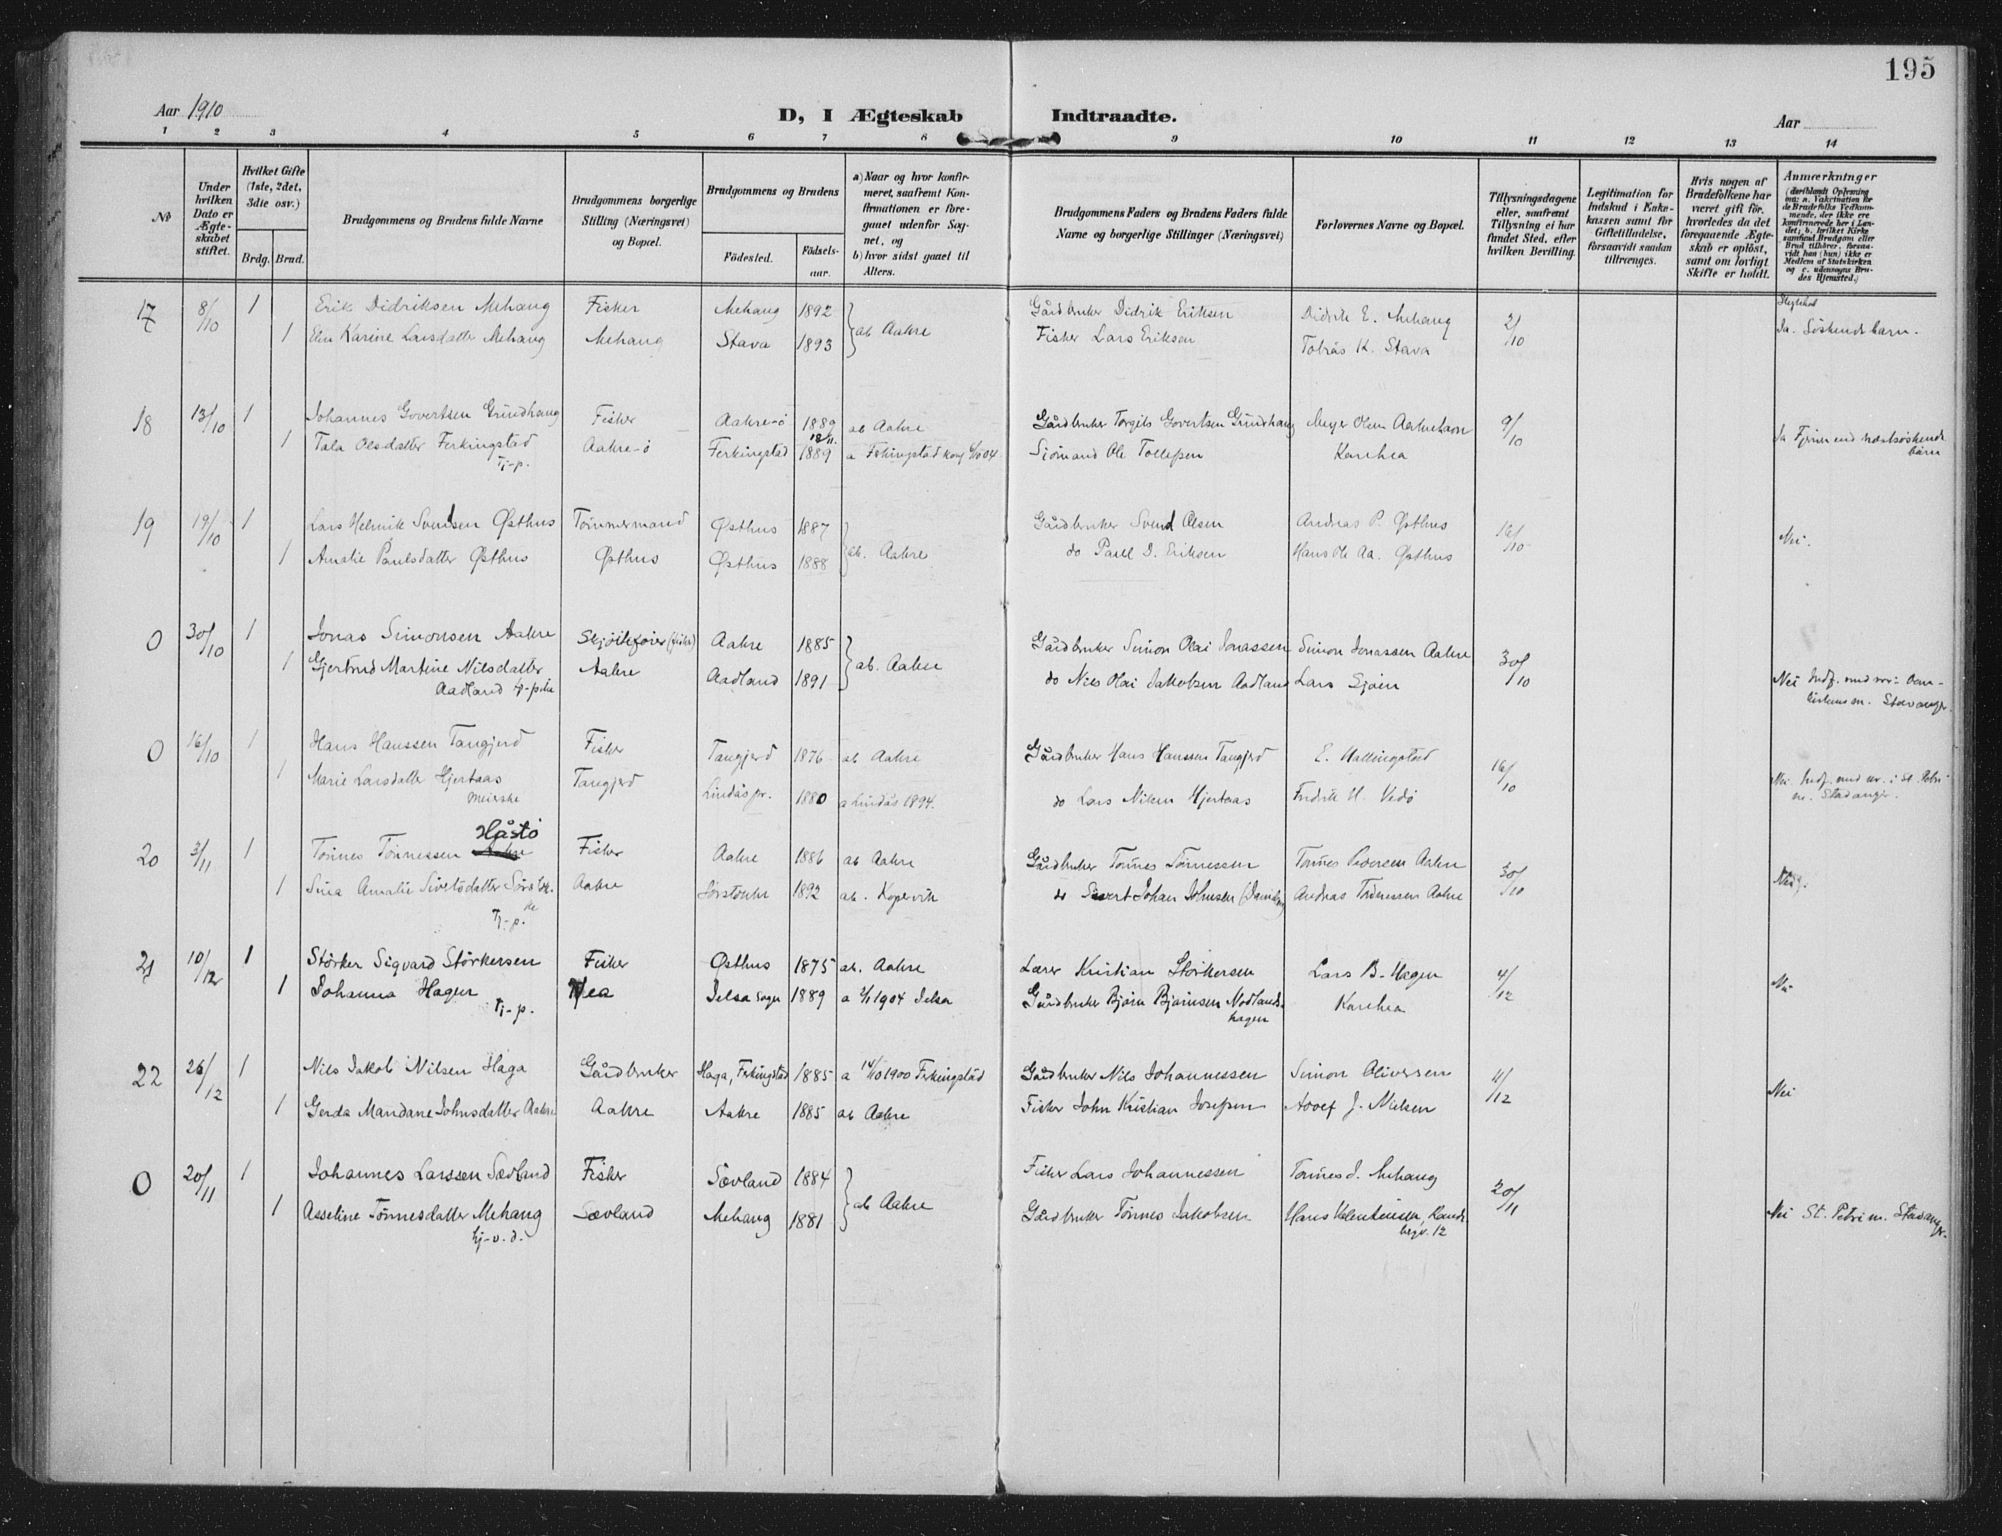 195
Aar 1910
D, I Ægteskab Indtraadte.
Aar
1 2 3 4 5 6 7 8 9 10 11 12 13 14
No
Under hvilken Dato er Ægteskabet stiftet.
Hvilket Gifte (1ste, 2det, 3die osv.)
Brdg. Brud.
Brudgommens og Brudens fulde Navne
Brudgommens borgerlige Stilling (Næringsvei) og Bopæl.
Brudgommens og Brudens
Födested. Födselsaar.
a) Naar og hvor konfirmeret, saafremt Konfirmationen er foregaaet udenfor Sognet, og
b) hvor sidst gaaet til Alters.
Brudgommens Faders og Brudens Faders fulde Navne og borgerlige Stillinger (Næringsvei)
Forlovernes Navne og Bopæl.
Tillysningsdagene eller, saafremt Tillysning ei har fundet Sted, efter hvilken Bevilling.
Legitimation for Indskud i Enkekassen samt for Giftetilladelse, forsaavidt saadan tiltrænges.
Hvis nogen af Brudefolkene har været gift för, hvorledes da det foregaaende Ægteskab er oplöst, samt om lovligt Skifte er holdt.
Anmærkninger
17 8/10 1 Erik Didriksen Mehaug Fisker Mehaug 1892 ab Aakre Gårdbruker Didrik Eriksen Didrik E. Mehaug 2/10
1 Elen Karine Larsdatter Mehaug Mehaug Stava 1893 Fisker Lars Eriksen Tobias K. Stava Ja. Söskendebarn.
18 13/10 1 Johannes Govertsen Grindhaug Fisker Aakre-ö 1889 ab Aakre Gårdbruker Torgils Govertsen Grindhaug Meyer Olsen Aakrehavn 9/10
1 Tala Olsdatter Ferkingstad Aakre-ö Ferkingstad 1889 a Ferkingstad Sjömand Ole Tollefsen Karihea Ja
Tj-p.
19 19/10 1 Lars Helmik Svendsen Østhus Tømmermand Østhus 1887 ab. Aakre Gårdbruker Svend Olsen Andreas P. Østhus 16/10 Nei.
1 Amalie Paulsdatter Østhus Østhus Østhus 1888 do Paul D. Eriksen Hans Ole Aa. Østhus
0 30/10 1 Jonas Simonsen Aakre (fisker) Aakre 1885 ab. Aakre Gårdbruker Simon Olai Jonassen Simon Jonassen Aakre 30/10
1 Gjertrud Martine Nilsdatter Aakre Aadland 1891 do Nils Olai Jakobsen Aadland Lars Sjøen Nei
Aadland Tj-pike Stavanger.
0 16/10 1 Hans Hanssen Tangjerd Fisker Tangjerd 1876 ab Aakre Gårdbruker Hans Hanssen Tangjerd E. Hallingstad 16/10
1 Marie Larsdatter Hjertaas Tangjerd Lindås pr. 1880 a Lindås 1894. do Lars Nilsen Hjertaas Fredrik H. Vedö Nei. Indf. med nr. i St. Petri
Stavanger.
Håstö
20 3/11 1 Tönnes Tönnessen Aakre Fisker Aakre 1886 ab Aakre Gårdbruker Tönnes Tönnessen Tönnes Pedersen Aakre 30/10
1 Sina Amalie Sivertsdatter Aakre 1892 ab. Kopervik Sivert Johan Johnsen Andreas Tönnessen Aakre
Tj-p.
21 10/12 1 Störker Sigvard Störkersen Fisker Østhus 1875 ab. Aakre Lærer Kristian Störkersen Lars B. Hagen 4/12 Nei
1 Johanna Hagen Vea Jelsa sogn 1889 a 2/1 1904 Jelsa Gårdbruker Björn Björnsen Nedlands- Karihea
Tj-p. hagen
22 26/12 1 Nils Jakob Nilsen Haga Gårdbruker Haga, Ferkingstad 1885 a 14/10 1900 Ferkingstad Gårdbruker Nils Johannessen Simon Oliversen 11/12 Nei
1 Gerda Mandane Johnsdatter Aakre Aakre Aakre 1885 ab Aakre Fisker John Kristian Josefsen Adolf J. Nielsen
0 20/11 1 Johannes Larssen Sævland Fisker Sævland 1884 ab Aakre Fisker Lars Johannessen Tönnes J. Mehaug 20/11
1 Asseline Tönnesdatter Mehaug Sævland Mehaug 1881 Gårdbruker Tönnes Jakobsen Hans Nei St. Petri m. Stavanger.
tj-v.d.